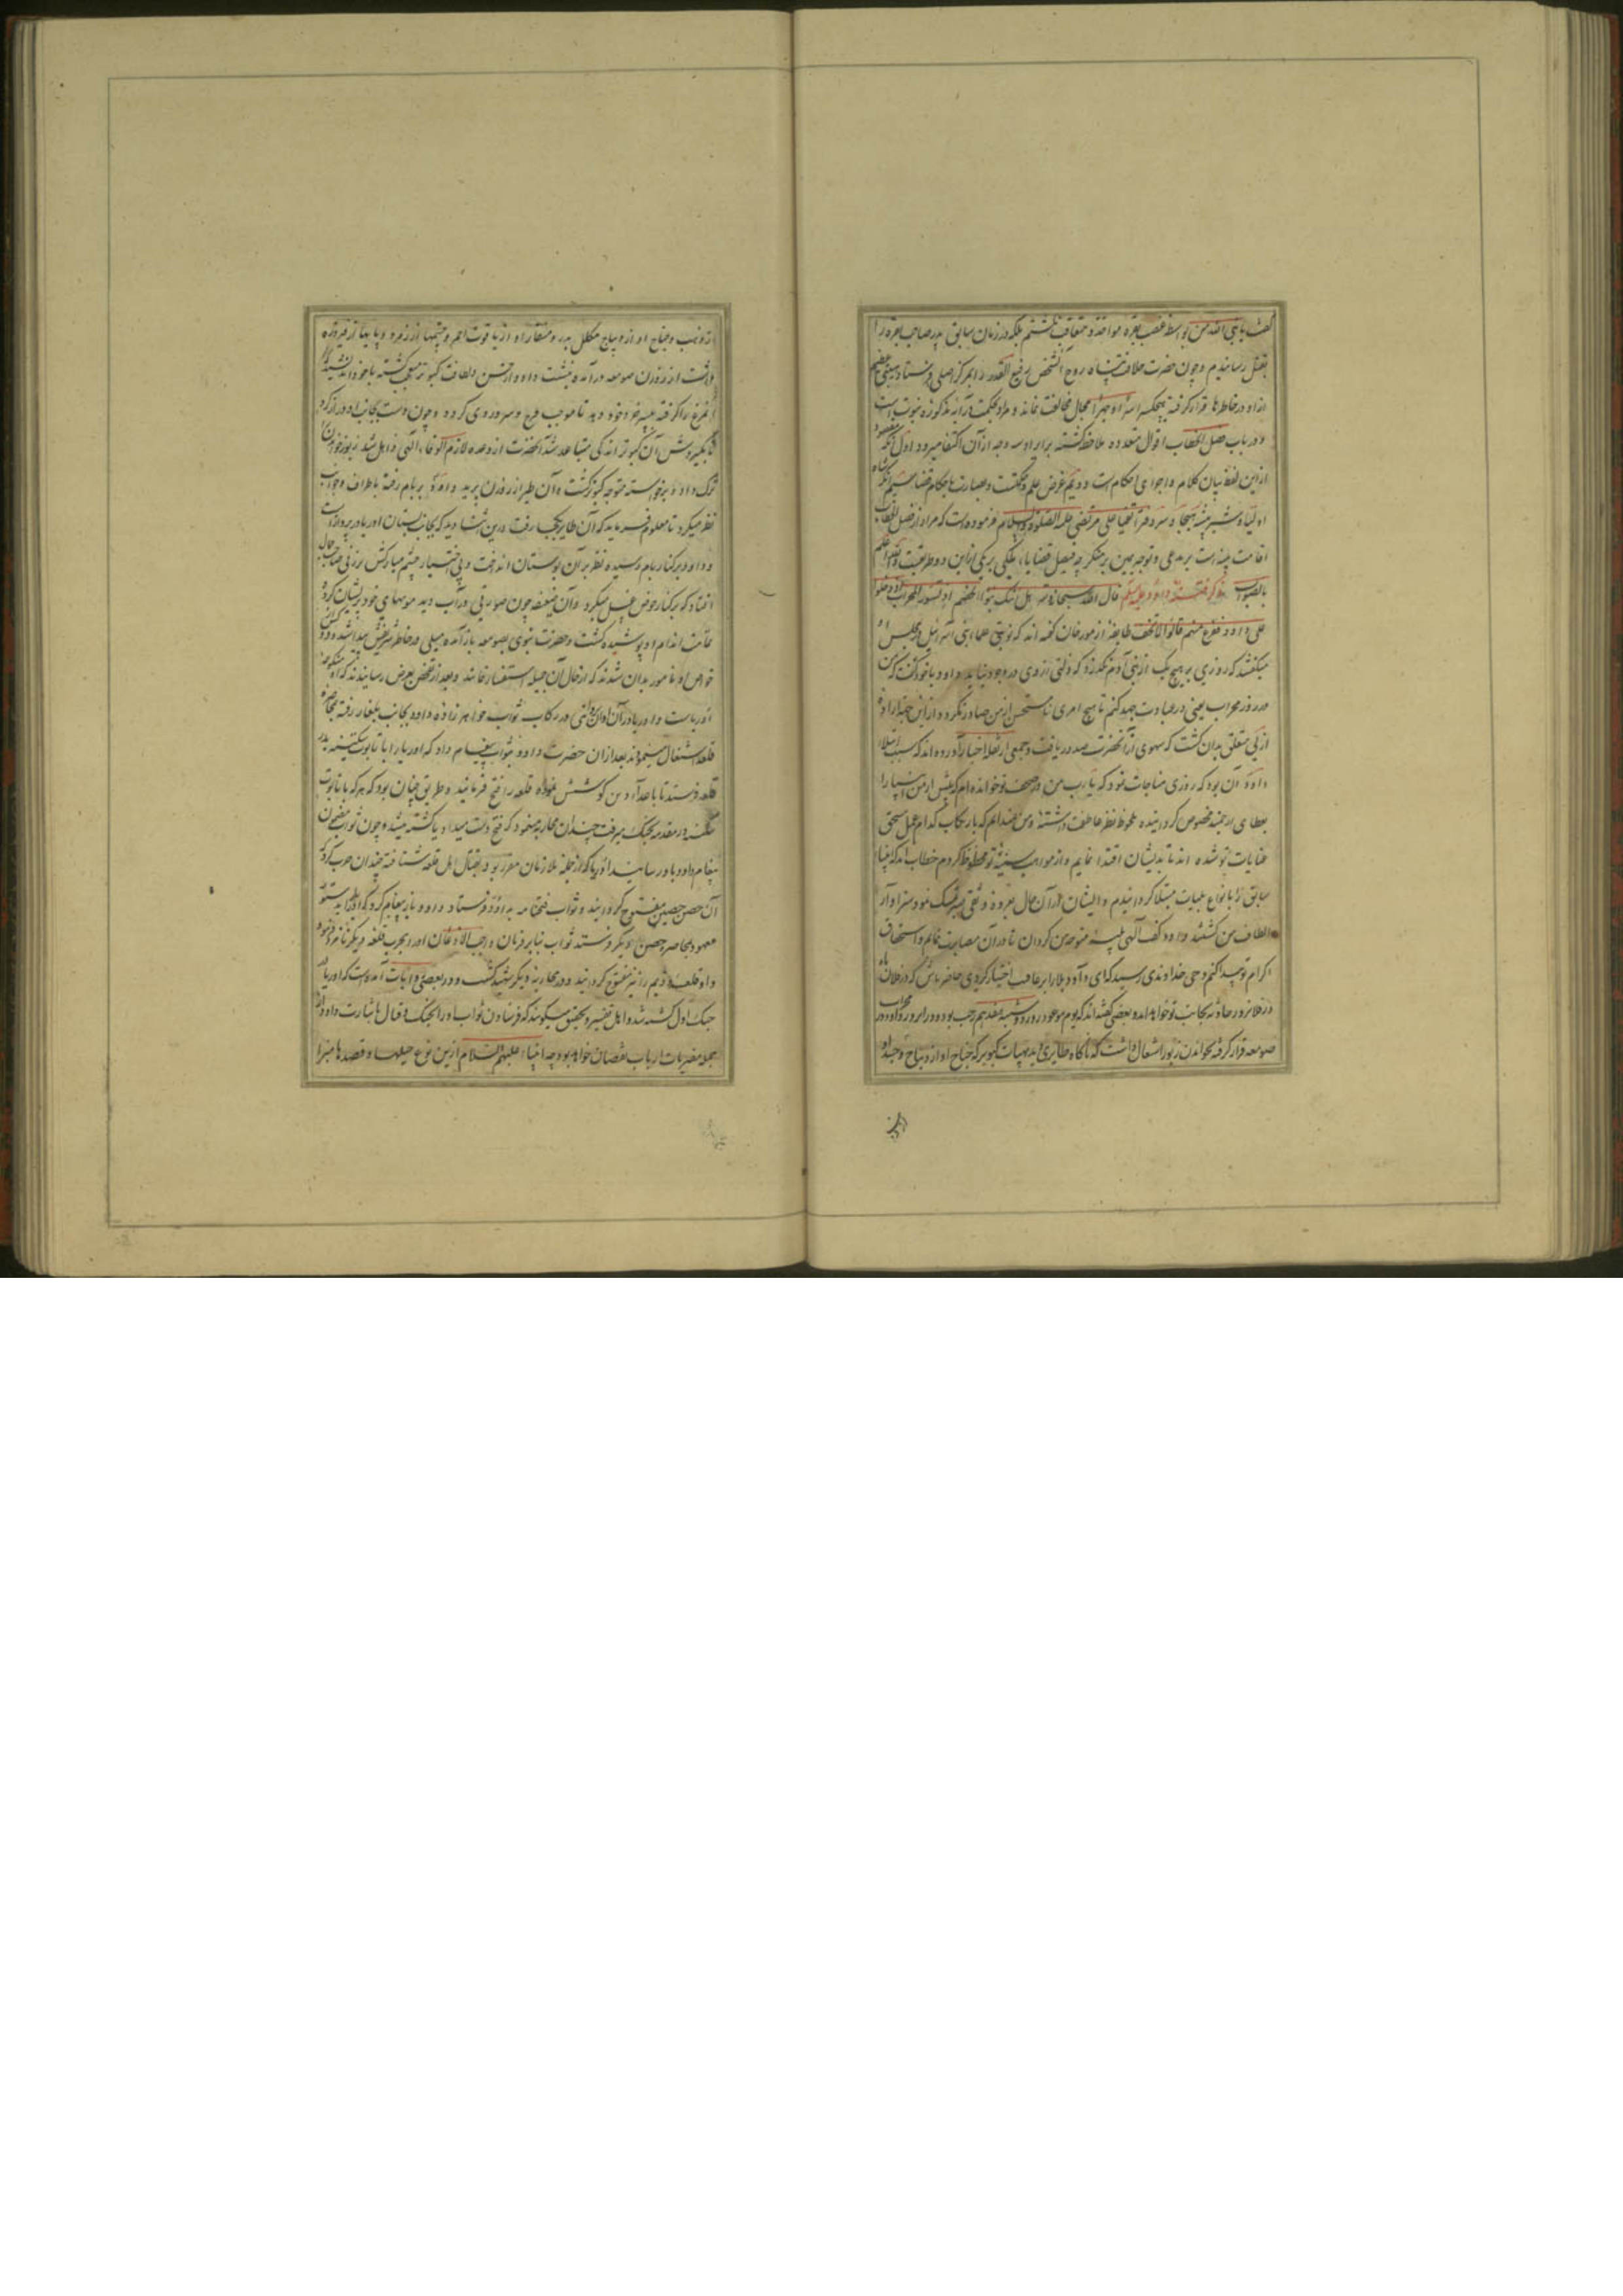 گفت یا نبی الله من بواسطه غصب بقره مواخذ و معاقب نگشتم بلکه در زمان سابق پدر صاحب بقره را
بقتل رسانیدم و چون حضرت خلافت پناه روح آن شخص رفیع القدر را بمرکز اصلی فرستاد هیبتی عظیم
از او در خاطرها قرار گرفته هیچکس را سرا و جهرا مجال مخالفت نماند و مراد بحکمت در آیه مذکوره نبوت است
و در باب فصل الخطاب اقوال متعدده ملاحظه گشته برایراد سه وجه از آن اکتفا میرود اول آنکه مقصود
از این لفظ بیان کلام و اجرای احکام است دویم غرض علم و حکمت و بصارت باحکام قضا سیم آنکه شاه
اولیاء شیر بیشه هیجا و سر دفتر اتقیا علی مرتضی علیه الصلوة والسلام فرموده است که مراد از فصل الخطاب
اقامت بینه است بر مدعی و توجه یمین بر منکر چه فیصل قضایا بالکلی بر یکی ازین دو طریقست والله اعلم
بالصواب ذکر فتنه داود علیه السلام قال الله سبحانه و تعالی هل اتیک نبوا الخصم اذ تسوروا المحراب اذ دخلوا
علی داود ففزع منهم قالوا لا تخف طایفه از مورخان گفته اند که نوبتی علماء بنی اسرائیل در مجلس او
میگفتند که روزی بر هیچ یک از بنی آدم نگذرد که ذلتی از وی در وجود نیاید داود با خود گفت که من
در روز محراب یعنی در عبادت جهد کنم تا هیچ امری نامستحسن از من صادر نگردد و از این جهة اراده
ازلی متعلق بدان گشت که سهوی از آنحضرت صدور یافت و جمعی از نقله اخبار آورده اند که سبب ابتلاء
داود آن بود که روزی مناجات نمود که یا رب من در صحف تو خوانده ام که پیش از من انبیا را
بعطای ارجمند مخصوص گردانیده ملحوظ نظر عاطفت داشتۀ و من نمیدانم که بارتکاب کدام عمل مستحق
عنایات تو شده اند تا بدیشان اقتدا نمایم و از مواهب سنیۀ تو محظوظ گردم خطاب آمد که انبیاء
سابق را بانواع بلیات مبتلا گردانیدم و ایشان در آن حال بعروة وثقی صبر تمسک نموده سزاوار
الطاف من گشتند داود گفت آلهی بلیۀ متوجه من گردان تا در آن مصابرت نمایم و استحقاق
اکرام تو پیدا کنم وحی خداوندی رسید که ای داود بلا را بر عافیت اختیار کردی حاضر باش که در فلان ماه
در فلان روز حادثه بجانب تو خواهد آمد و بعضی گفته اند که یوم موعود روز دوشنبه هفدهم رجب بود و در این روز داود در محراب
صومعه قرار گرفته بخواندن زبور اشتغال داشت که ناگاه طایری بدید بهیات کبوتر که جناح او از دیباج و جسد او
از ذهب و جناح او از دیباج مکلل بدر و منقار او از یاقوت احمر و چشمها از زمرد و پایها از فیروزه
داشت از روزن صومعه درآمده بنشست داود از حسن و لطافت کبوتر متعجب گشته با خود اندیشید که
این مرغ را گرفته به پسر خرد خود دهد تا موجب فرح و سرور وی گردد و چون دست بجانب او دراز کرد
تا بگیردش آن کبوتر اندکی متباعد شد آنحضرت از وعده لازم الوفاء الهی ذاهل شد زبور خواندن
ترک داد و برخواسته متوجه کبوتر گشت و آن طیر از روزن پرید داود بر بام رفته باطراف و جوانب
نظر میکرد تا معلوم فرماید که آن طایر بکجا رفت درین اثنا دید که بجانب بستان اوریا در پرواز است
و داود بر کنار بام رسیده نظر بر آن بوستان انداخت و بی اختیار چشم مبارکش بر زنی صاحب جمال
افتاد که بر کنار حوض غسل میکرد و آن ضعیفه چون صورتی در آب دید مویهای خود پریشان کرده
تمامت اندام او پوشیده گشت و حضرت نبوی بصومعه باز آمده میلی در خاطر شریفش پیدا شده و دو کس از
خواص او مامور بدان شدند که از حال آن جمیله استفسار نمایند و بعد از تفحص بعرض رسانیدند که او منکوحۀ
اوریاست و اوریا در آن اوان بوالنی در رکاب ثواب خواهرزاده داود بجانب بلغار رفته بمحاصره
قلعه اشتغال مینمود بعد از آن حضرت داود بثواب پیغام داد که اوریا را با تابوت سکینه بدر
قلعه فرستد تا با اعدا و دین کوشش نموده قلعه را فتح فرمایند و طریق چنان بود که هر که با تابوت
سکینه در مقدمه بجنگ میرفت چندان محاربه مینمود که فتح دست میداد یا کشته میشد و چون ثواب مضمون
پیغام داود باوریا رسانید اوریا که از جمله ملازمان مقرر بود بقتال اهل قلعه شتافته چندان حرب کرد که
آن حصن حصین مفتوح گردانید و ثواب فتحنامه به داود فرستاد و داود باز پیغام کرد که اوریا را بدستور
معهود بمحاصره حصن دیگر فرستد ثواب بنابر فرمان واجب الاذعان اوریا بحرب قلعه دیگر نامزد فرموده
و او قلعۀ دویم را نیز مفتوح گردانید و در محاربۀ دیگر شهید گشت و در بعضی روایات آمده است که اوریا در
جنگ اول کشته شد و اهل تفسیر و تحقیق میگویند که فرستادن ثواب اوریا را بجنگ و قتال باشارت داود از
جمله مفتریات ارباب نقصان خواهد بود چه انبیاء علیهم السلام ازین نوع حیلها و قصدها مبرا